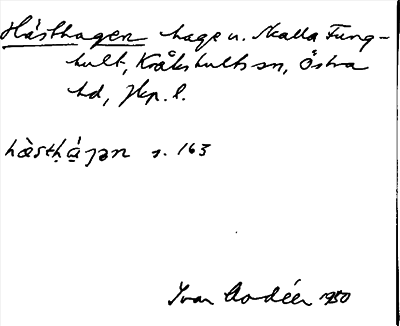 Hästhagen hage u. Skalla Fung-
hult, Kråkshults sn, Östra
hd, Jkp. l.
hàsthạ́gən s. 163
Ivar Modéer 1930